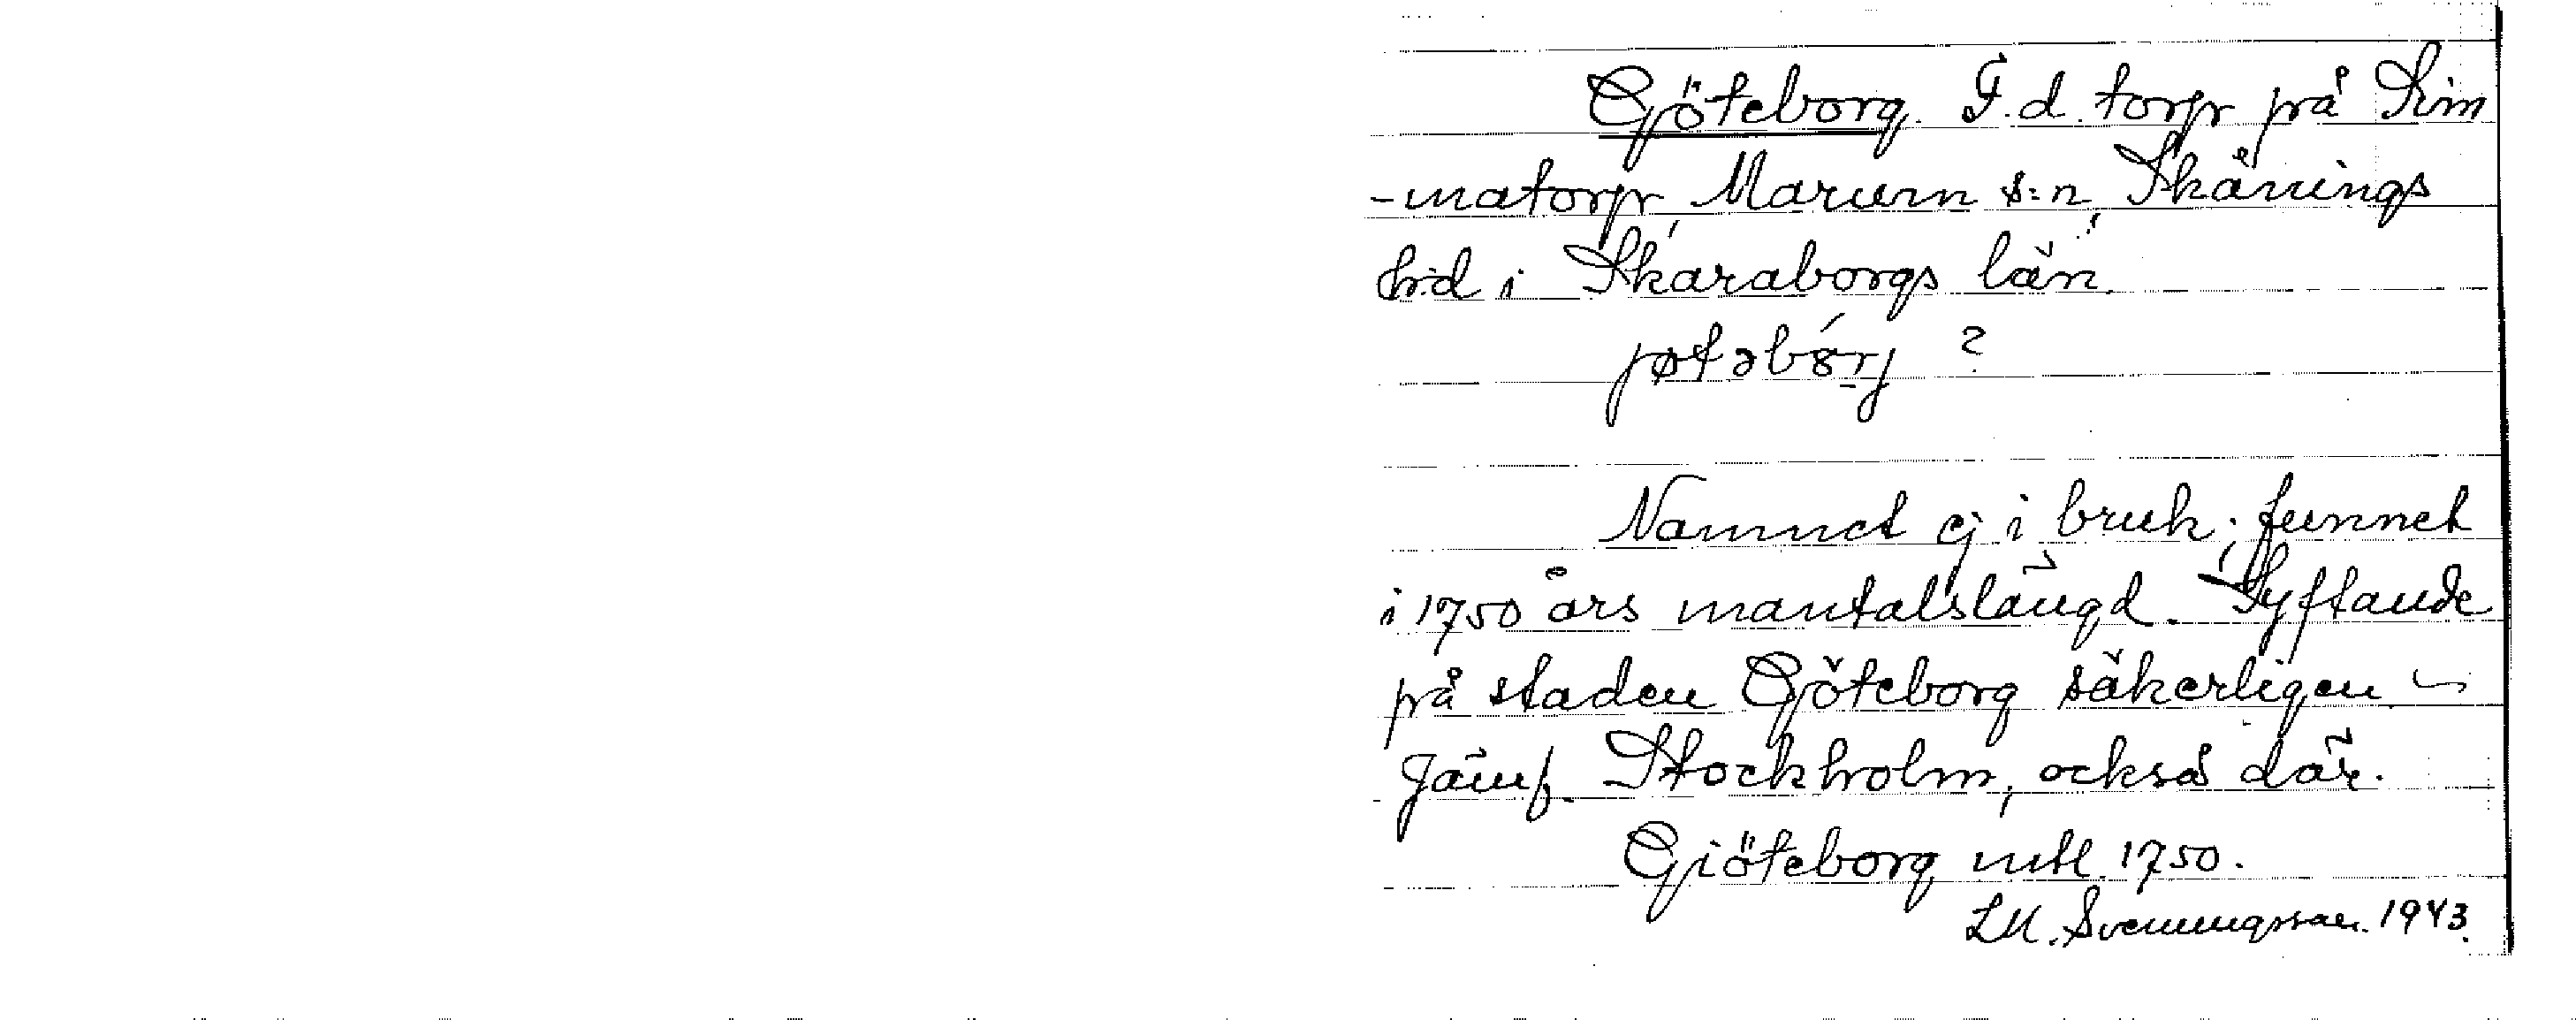 Göteborg. F.d. torp på Sim
-matorp, Marum s:n, Skånings
h:d i Skaraborgs län.
jøtəbórj ?
Namnet ej i bruk; funnet
i 1750 års mantalslängd. Syftande
på staden Göteborg säkerligen. –
Jämf. Stockholm, också där.
Giöteborg mtl. 1750.
LM. Svenningsson. 1943.